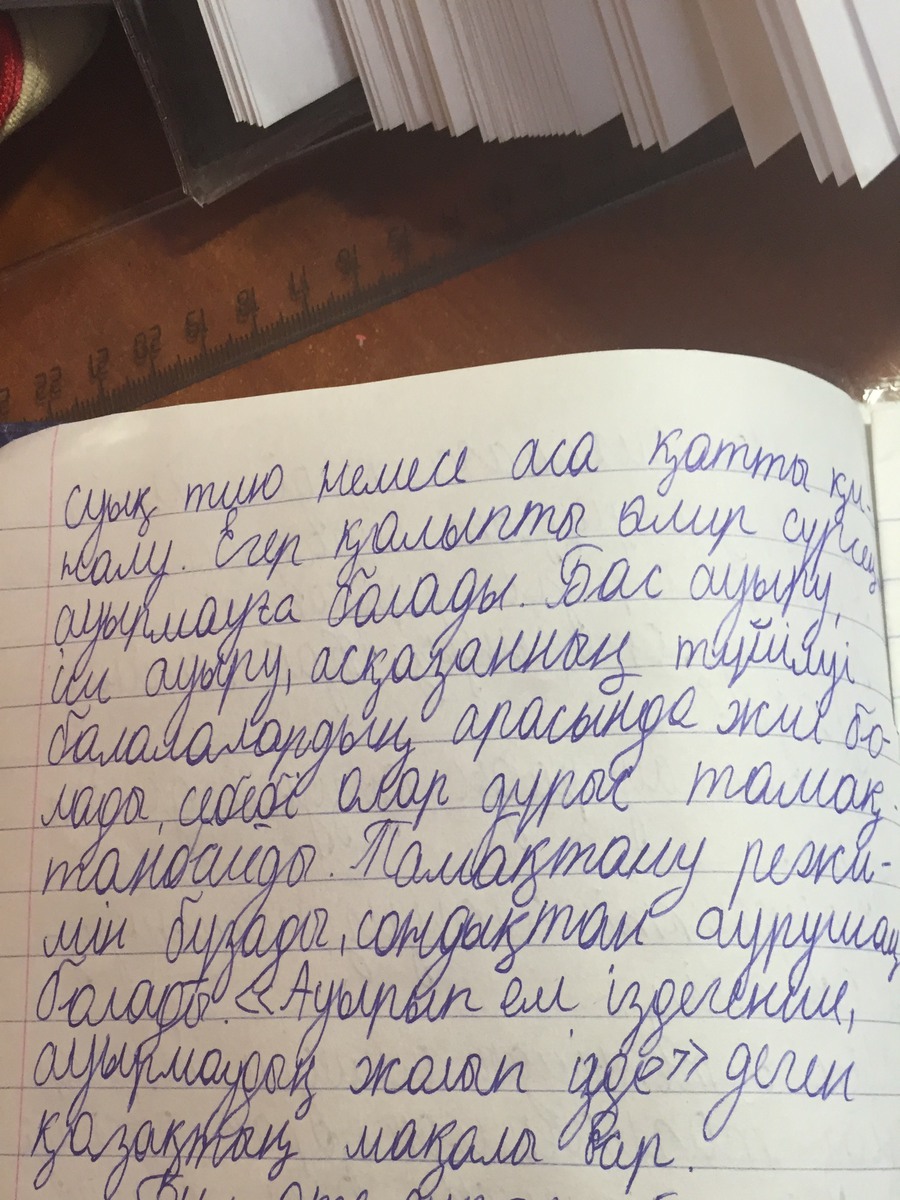 22 21 20 19 18 17 16 15
суық тию немесе аса қатты қи-
налу. Егер қалыпты өмир сүрсең
ауырмауға болады. Бас ауыру,
іш ауыру, асқазанның түйілуі
балалалардың арасында жиі бо-
лады, себебі олар дұрыс тамақ.
танбайды. Тамақтану режи-
мін бұзады, сондықтан аурушаң
болады. «Ауырып ем іздегенше,
ауырмаудың жолын ізде» деген
қазақтың мақалы бар.